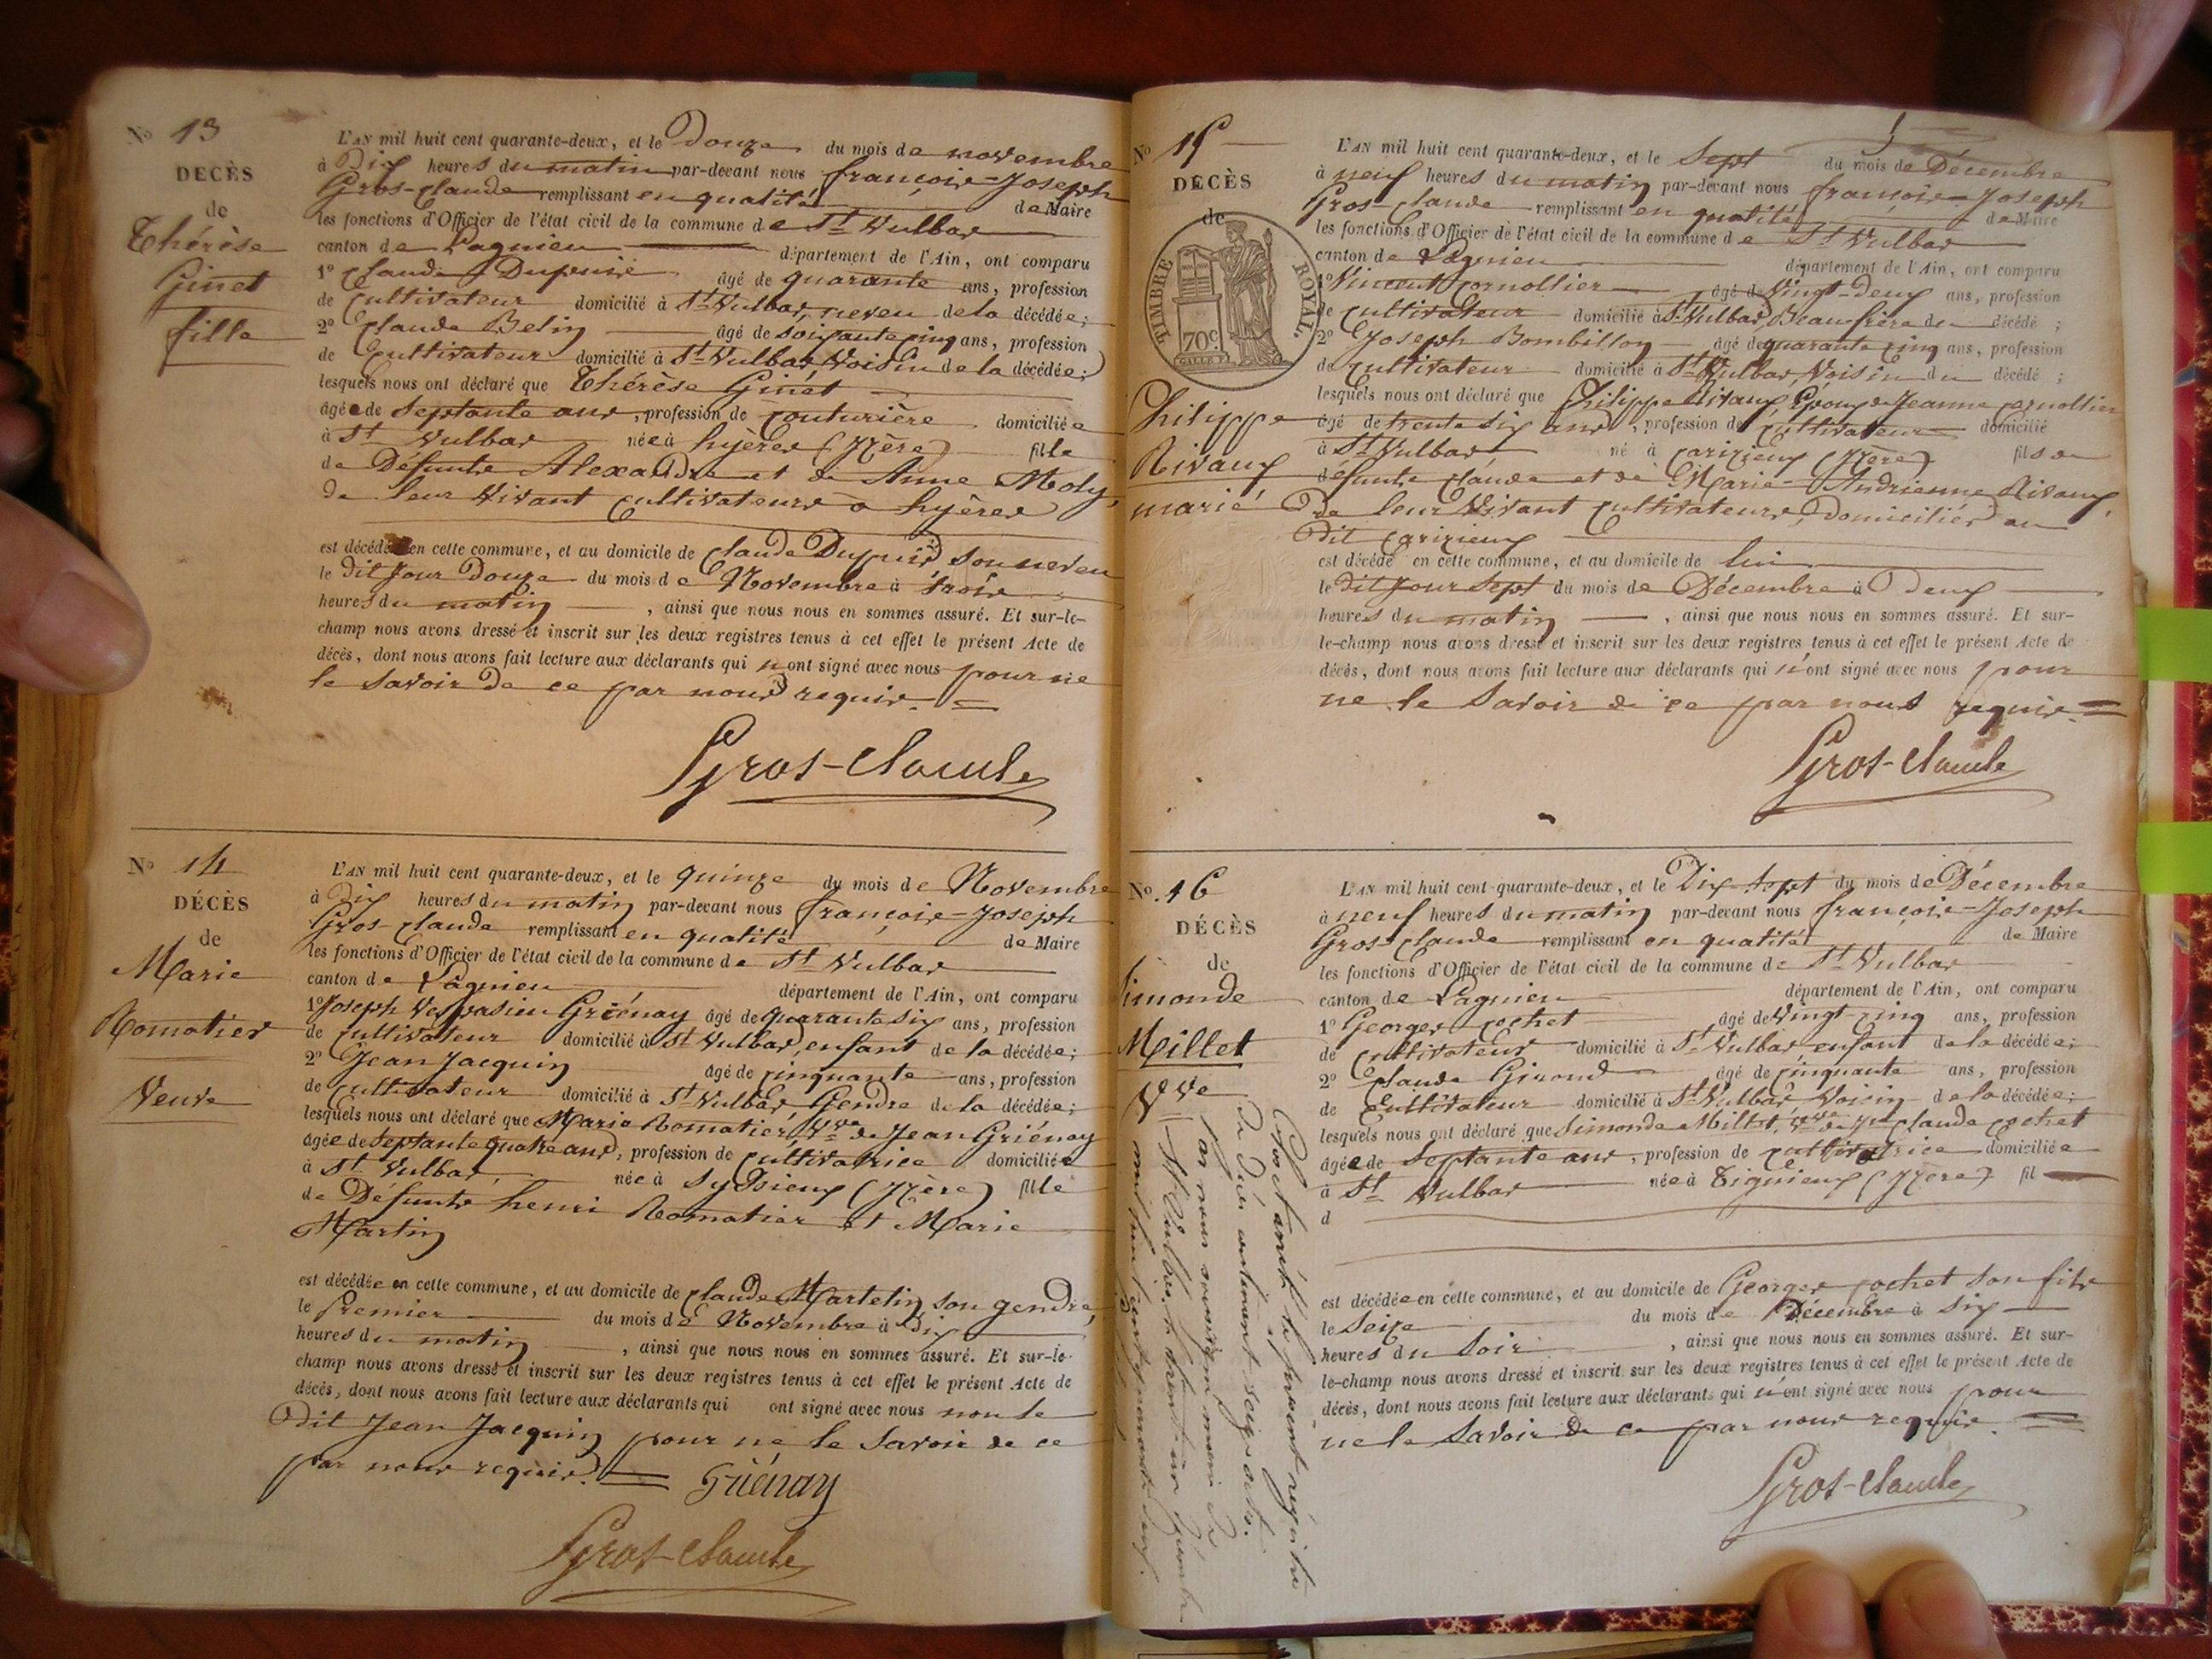 No 13
DECÈS
de
Thérèse
Ginet
fille
L'AN mil huit cent quarante-deux, et le Douze du mois de novembre
à Dix heures du matin par-devant nous françois-Joseph
Gros-Claude remplissant en qualité de Maire
les fonctions d'Officier de l'état civil de la commune de St Vulbas
canton de Lagnieu département de l'Ain, ont comparu
1o Claude Dupuis âgé de quarante ans, profession
de Cultivateur domicilié à St Vulbas, neveu de la décédée;
2o Claude Belin âgé de soixante cinq ans, profession
de Cultivateur domicilié à St Vulbas, Voisin de la décédée;
lesquels nous ont déclaré que Thérèse Ginet
âgée de septante ans, profession de couturière domiciliée
à St Vulbas née à hyères (Izère) fille
de Défunts Alexandre et de Anne Moly,
de leur Vivant Cultivateurs à hyères
est décédée en cette commune, et au domicile de Claude Dupuis son neveu
le dit Jour Douze du mois de Novembre à trois
heures du matin, ainsi que nous nous en sommes assuré. Et sur-le-
champ nous avons dressé et inscrit sur les deux registres tenus à cet effet le présent Acte de
décès, dont nous avons fait lecture aux déclarants qui n'ont signé avec nous pour ne
le savoir de ce par nous requis. =
Gros-Claude
No 14
DÉCÈS
de
Marie
Romatier
Veuve
L'AN mil huit cent quarante-deux, et le quinze du mois de Novembre
à Dix heures du matin par-devant nous françois-Joseph
Gros-Claude remplissant en qualité de Maire
les fonctions d'Officier de l'état civil de la commune de St Vulbas
canton de Lagnieu département de l'Ain, ont comparu
1o Joseph Vespasien Griénay âgé de quarante six ans, profession
de Cultivateur domicilié à St Vulbas, enfant de la décédée;
2o Jean Jacquin âgé de cinquante ans, profession
de Cultivateur domicilié à St Vulbas, Gendre de la décédée;
lesquels nous ont déclaré que Marie Romatier, Vve de Jean Griénay
âgée de septante quatre ans, profession de cultivatrice domiciliée
à St Vulbas, née à (Izère) fille
de Défunts henri Romatier et Marie
Martin
est décédée en cette commune, et au domicile de Claude Martelin, son gendre,
le Premier du mois de Novembre à Dix
heures du matin, ainsi que nous nous en sommes assuré. Et sur-le-
champ nous avons dressé et inscrit sur les deux registres tenus à cet effet le présent Acte de
décès, dont nous avons fait lecture aux déclarants qui ont signé avec nous non le
Dit Jean Jacquin pour ne le savoir de ce
par nous requis. = Griénay
Gros-Claude
5
No 15
DÉCÈS
de
TIMBRE ROYAL.
70c
Philippe
Rivaux
marié
L'AN mil huit cent quarante-deux, et le Sept du mois de Décembre
à neuf heures du matin par-devant nous françois-Joseph
Gros-Claude remplissant en qualité de Maire
les fonctions d'Officier de l'état civil de la commune de St Vulbas
canton de Lagnieu département de l'Ain, ont comparu
1o Vincent Cornollier âgé de Vingt-Deux ans, profession
de Cultivateur domicilié à St Vulbas, Beaufrère du décédé;
2o Joseph Bombillon âgé de quarante cinq ans, profession
de Cultivateur domicilié à St Vulbas, Voisin du décédé;
lesquels nous ont déclaré que Philippe Rivaux, Époux de Jeanne Cornollier
âgé de trente six ans, profession de Cultivateur domicilié
à St Vulbas né à Carizieux (Izère) fils de
défunts Claude et de Marie-Andrienne Rivaux,
De leur Vivant Cultivateurs, Domiciliés au
Dit Carizieux
est décédé en cette commune, et au domicile de lui
le Dit Jour Sept du mois de Décembre à Deux
heures du matin, ainsi que nous nous en sommes assuré. Et sur-
le-champ nous avons dressé et inscrit sur les deux registres tenus à cet effet le présent Acte de
décès, dont nous avons fait lecture aux déclarants qui n'ont signé avec nous pour
ne le savoir de ce par nous requis. =
Gros-Claude
No 16
DÉCÈS
de
Simonde
Millet
Vve
L'AN mil huit cent quarante-deux, et le Dix-Sept du mois de Décembre
à neuf heures du matin par-devant nous françois-Joseph
Gros-Claude remplissant en qualité de Maire
les fonctions d'Officier de l'état civil de la commune de St Vulbas
canton de Lagnieu département de l'Ain, ont comparu
1o Georges Cochet âgé de Vingt-cinq ans, profession
de Cultivateur domicilié à St Vulbas enfant de la décédée;
2o Claude Girond âgé de cinquante ans, profession
de Cultivateur domicilié à St Vulbas Voisin de la décédée;
lesquels nous ont déclaré que Simonde Millet, Vve de Claude Cochet
âgée de Septante ans, profession de cultivatrice domiciliée
à St Vulbas née à Tignieux (Izère) fil
d
est décédée en cette commune, et au domicile de Georges Cochet son fils
le Seize du mois de Décembre à Six
heures du Soir, ainsi que nous nous en sommes assuré. Et sur-
le-champ nous avons dressé et inscrit sur les deux registres tenus à cet effet le présent Acte de
décès, dont nous avons fait lecture aux déclarants qui n'ont signé avec nous pour
ne le savoir de ce par nous requis. =
Gros-Claude
Clos et arrêté le présent régistre
De Décès contenant seize actes.
par nous soussigné maire de
St Vulbas, le trente un Décembre
mil huit cent quarante deux.